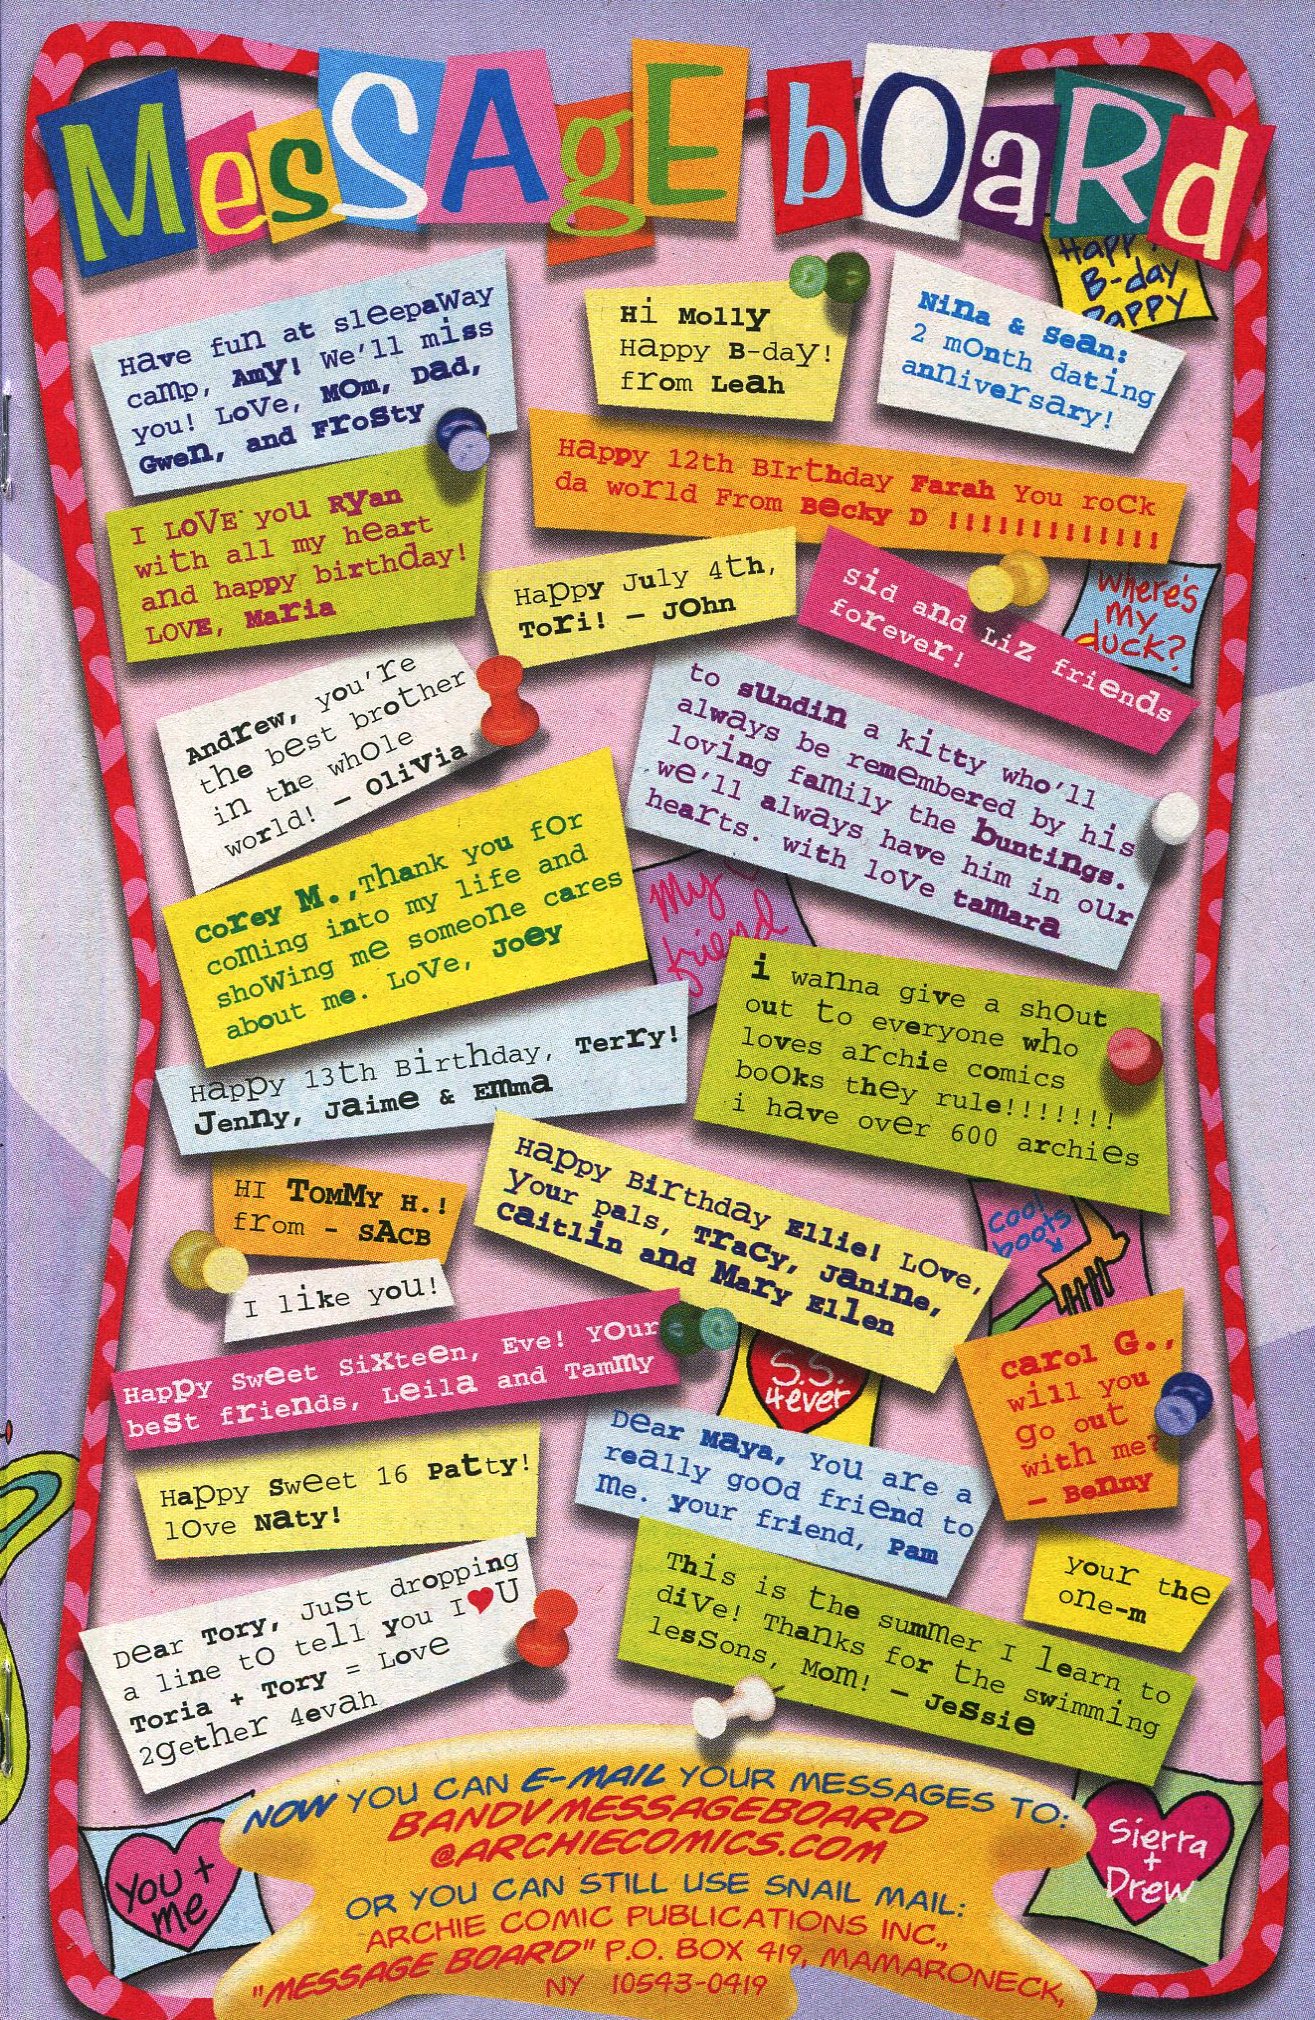 MesSAgE bOaRd
Happy
B-day
Pappy
Have fun at sleepaWay
camp, Amy! We'll miss
you! LoVe, MOm, Dad,
Gwen, and FroSty
Hi Molly
Happy B-day!
from Leah
Nina & Sean:
2 mOnth dating
anniversary!
Happy 12th BIrthday Farah You roCk
da world From Becky D !!!!!!!!!!!!!
I LoVE you RYan
with all my heart
and happy birthday!
LOVE, Maria
Happy July 4th,
Tori! — JOhn
sid and Liz friends
forever!
Where's
my
duck?
Andrew, you're
the best brother
in the whOle
world! — OliVia
to sundin a kitty who'll
always be remembered by his
loving family the buntings.
we'll always have him in our
hearts. with loVe tamara
Corey M.,Thank you fOr
coMing into my life and
shoWing me someoNe cares
about me. LoVe, Joey
My
friend
i wanna give a shOut
out to everyone who
loves archie comics
boOks they rule!!!!!!!
i have over 600 archies
Happy 13th Birthday, Terry!
Jenny, Jaime & Emma
HI ToMMY H.!
from - sACB
Happy Birthday Ellie! LOve,
Your pals, TRaCy, Janine,
Caitlin and Mary Ellen
Cool
boots
I like you!
Happy Sweet Sixteen, Eve! YOur
beSt friends, Leila and Tammy
S.S.
4ever
carol G.,
will you
go out
with me?
— Benny
Happy Sweet 16 Patty!
lOve Naty!
Dear Maya, You are a
really goOd friend to
Me. your friend, Pam
your the
oNe-m
Dear Tory, JuSt dropping
a line tO tell you I♥U
Toria + Tory = Love
2gether 4evah
This is the summer I learn to
diVe! Thanks for the swimming
lesSons, MoM! — JeSsie
NOW YOU CAN E-MAIL YOUR MESSAGES TO:
BANDVMESSAGEBOARD
@ARCHIECOMICS.COM
OR YOU CAN STILL USE SNAIL MAIL:
ARCHIE COMIC PUBLICATIONS INC.,
"MESSAGE BOARD" P.O. BOX 419, MAMARONECK,
NY 10543-0419
You +
me
Sierra
+
Drew